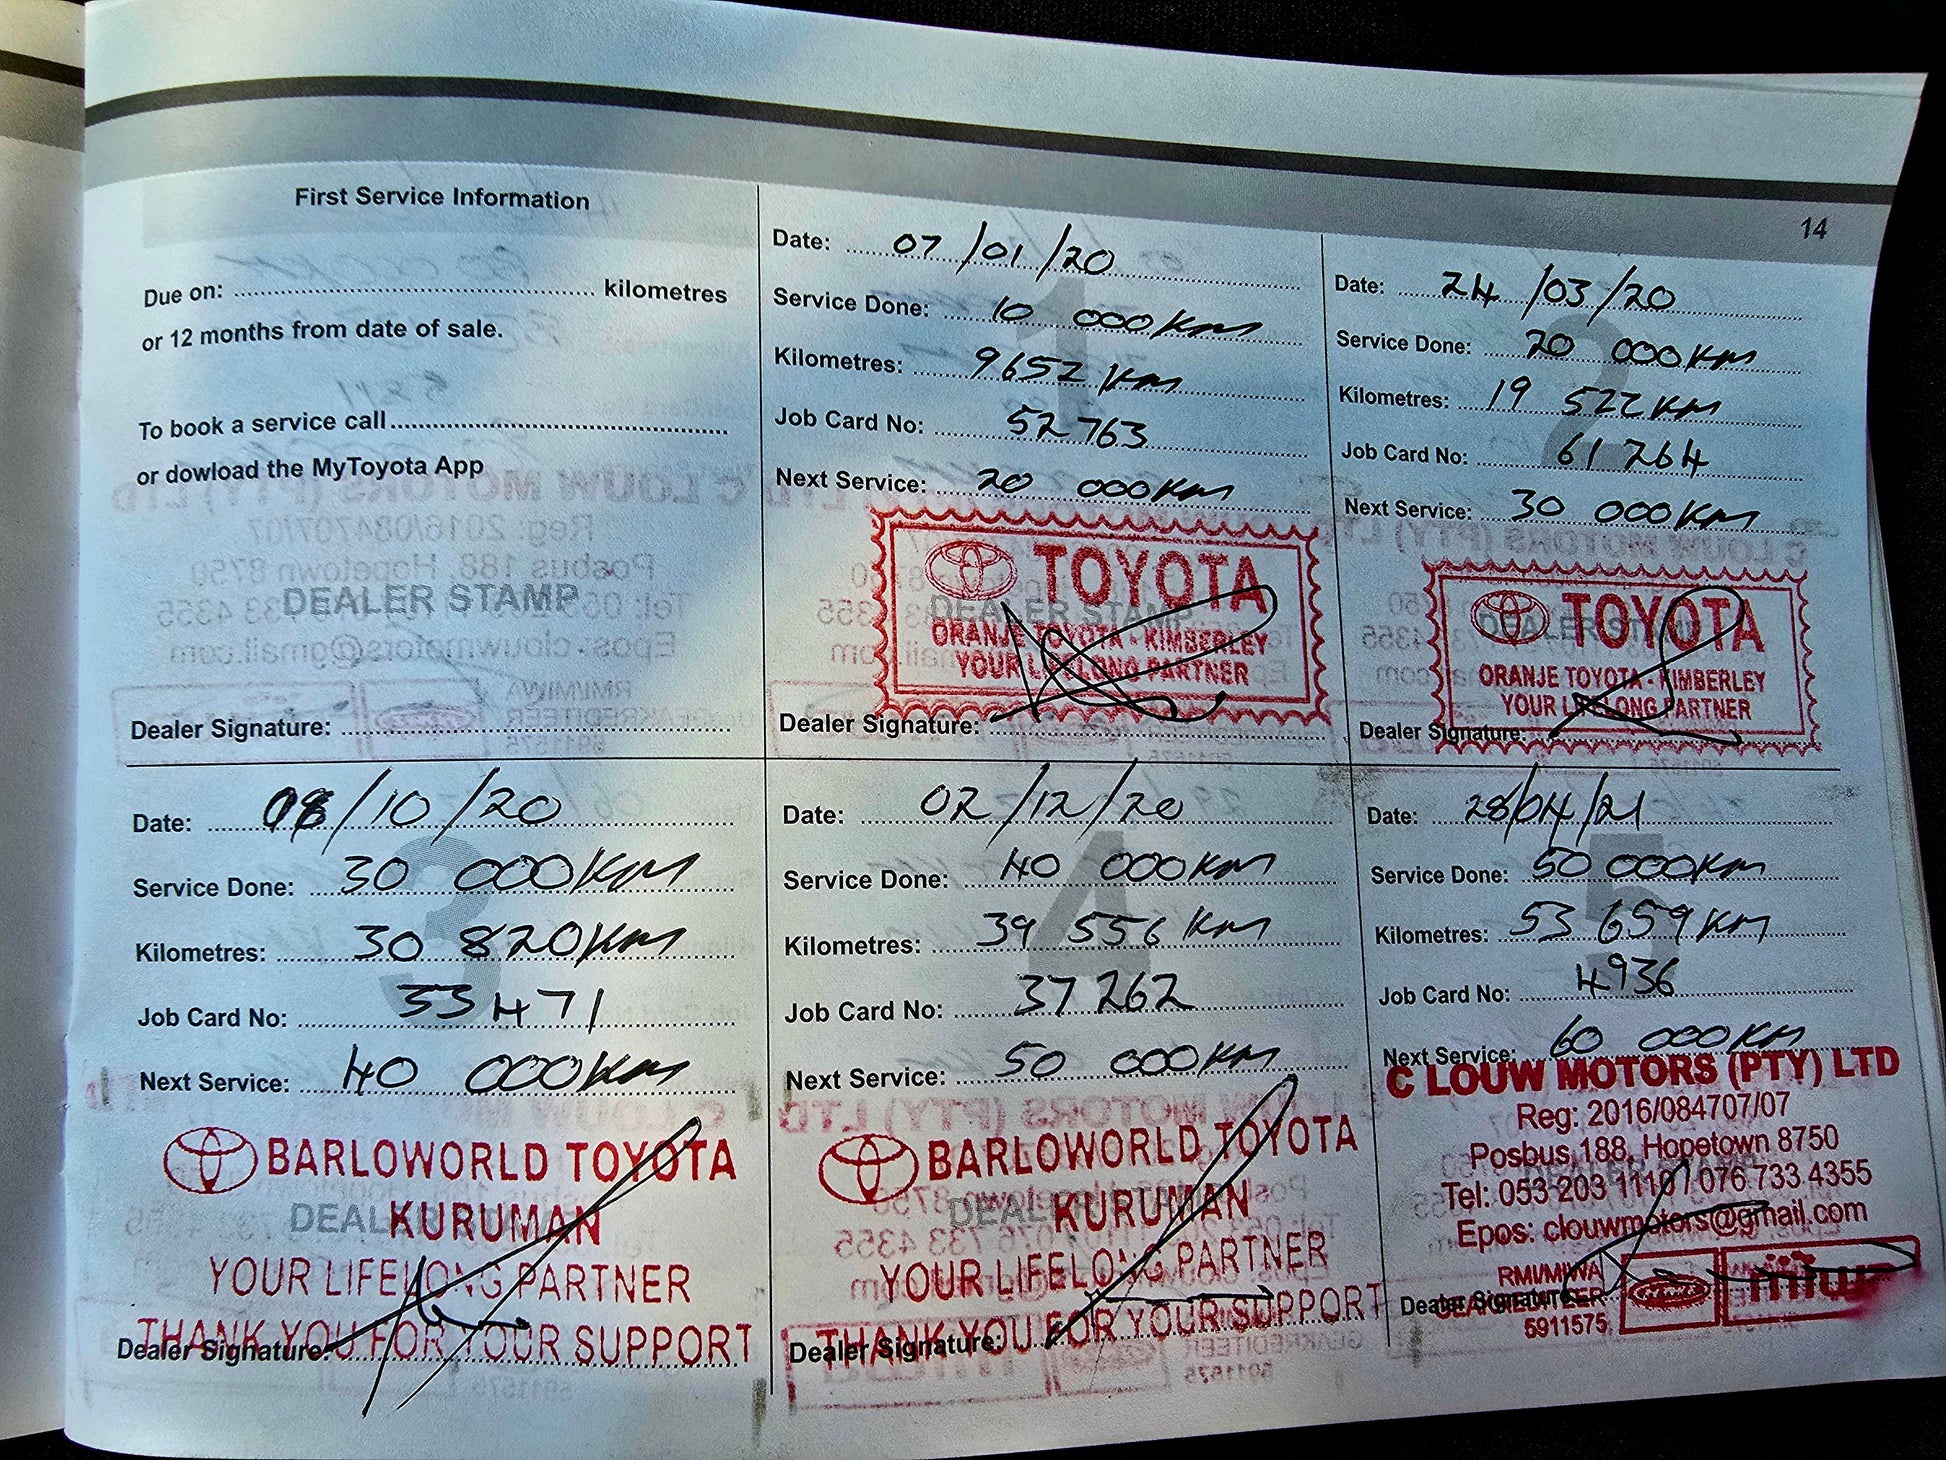 14
First Service Information
Due on: kilometres
or 12 months from date of sale.
To book a service call
or dowload the MyToyota App
DEALER STAMP
Dealer Signature:
1
Date: 07/01/20
Service Done: 10 000km
Kilometres: 9652 km
Job Card No: 52763
Next Service: 20 000km
TOYOTA
DEALER STAMP
ORANJE TOYOTA - KIMBERLEY
YOUR LIFELONG PARTNER
Dealer Signature:
2
Date: 24/03/20
Service Done: 20 000km
Kilometres: 19 522km
Job Card No: 61264
Next Service: 30 000km
TOYOTA
DEALER STAMP
ORANJE TOYOTA - KIMBERLEY
YOUR LIFELONG PARTNER
Dealer Signature:
3
Date: /10/20
Service Done: 30 000km
Kilometres: 30 820km
Job Card No: 33471
Next Service: 40 000km
BARLOWORLD TOYOTA
KURUMAN
YOUR LIFELONG PARTNER
THANK YOU FOR YOUR SUPPORT
Dealer Signature:
4
Date: 02/12/20
Service Done: 40 000km
Kilometres: 39 556 km
Job Card No: 37262
Next Service: 50 000km
BARLOWORLD TOYOTA
KURUMAN
YOUR LIFELONG PARTNER
THANK YOU FOR YOUR SUPPORT
Dealer Signature:
5
Date: 28/04/21
Service Done: 50 000km
Kilometres: 53 659km
Job Card No: 4936
Next Service: 60 000km
C LOUW MOTORS (PTY) LTD
Reg: 2016/084707/07
Posbus 188, Hopetown 8750
Tel: 053 203 1110 / 076 733 4355
Epos: clouwmotors@gmail.com
RMI/MIWA
GEAKREDITEER
5911575
miwa
Dealer Signature: